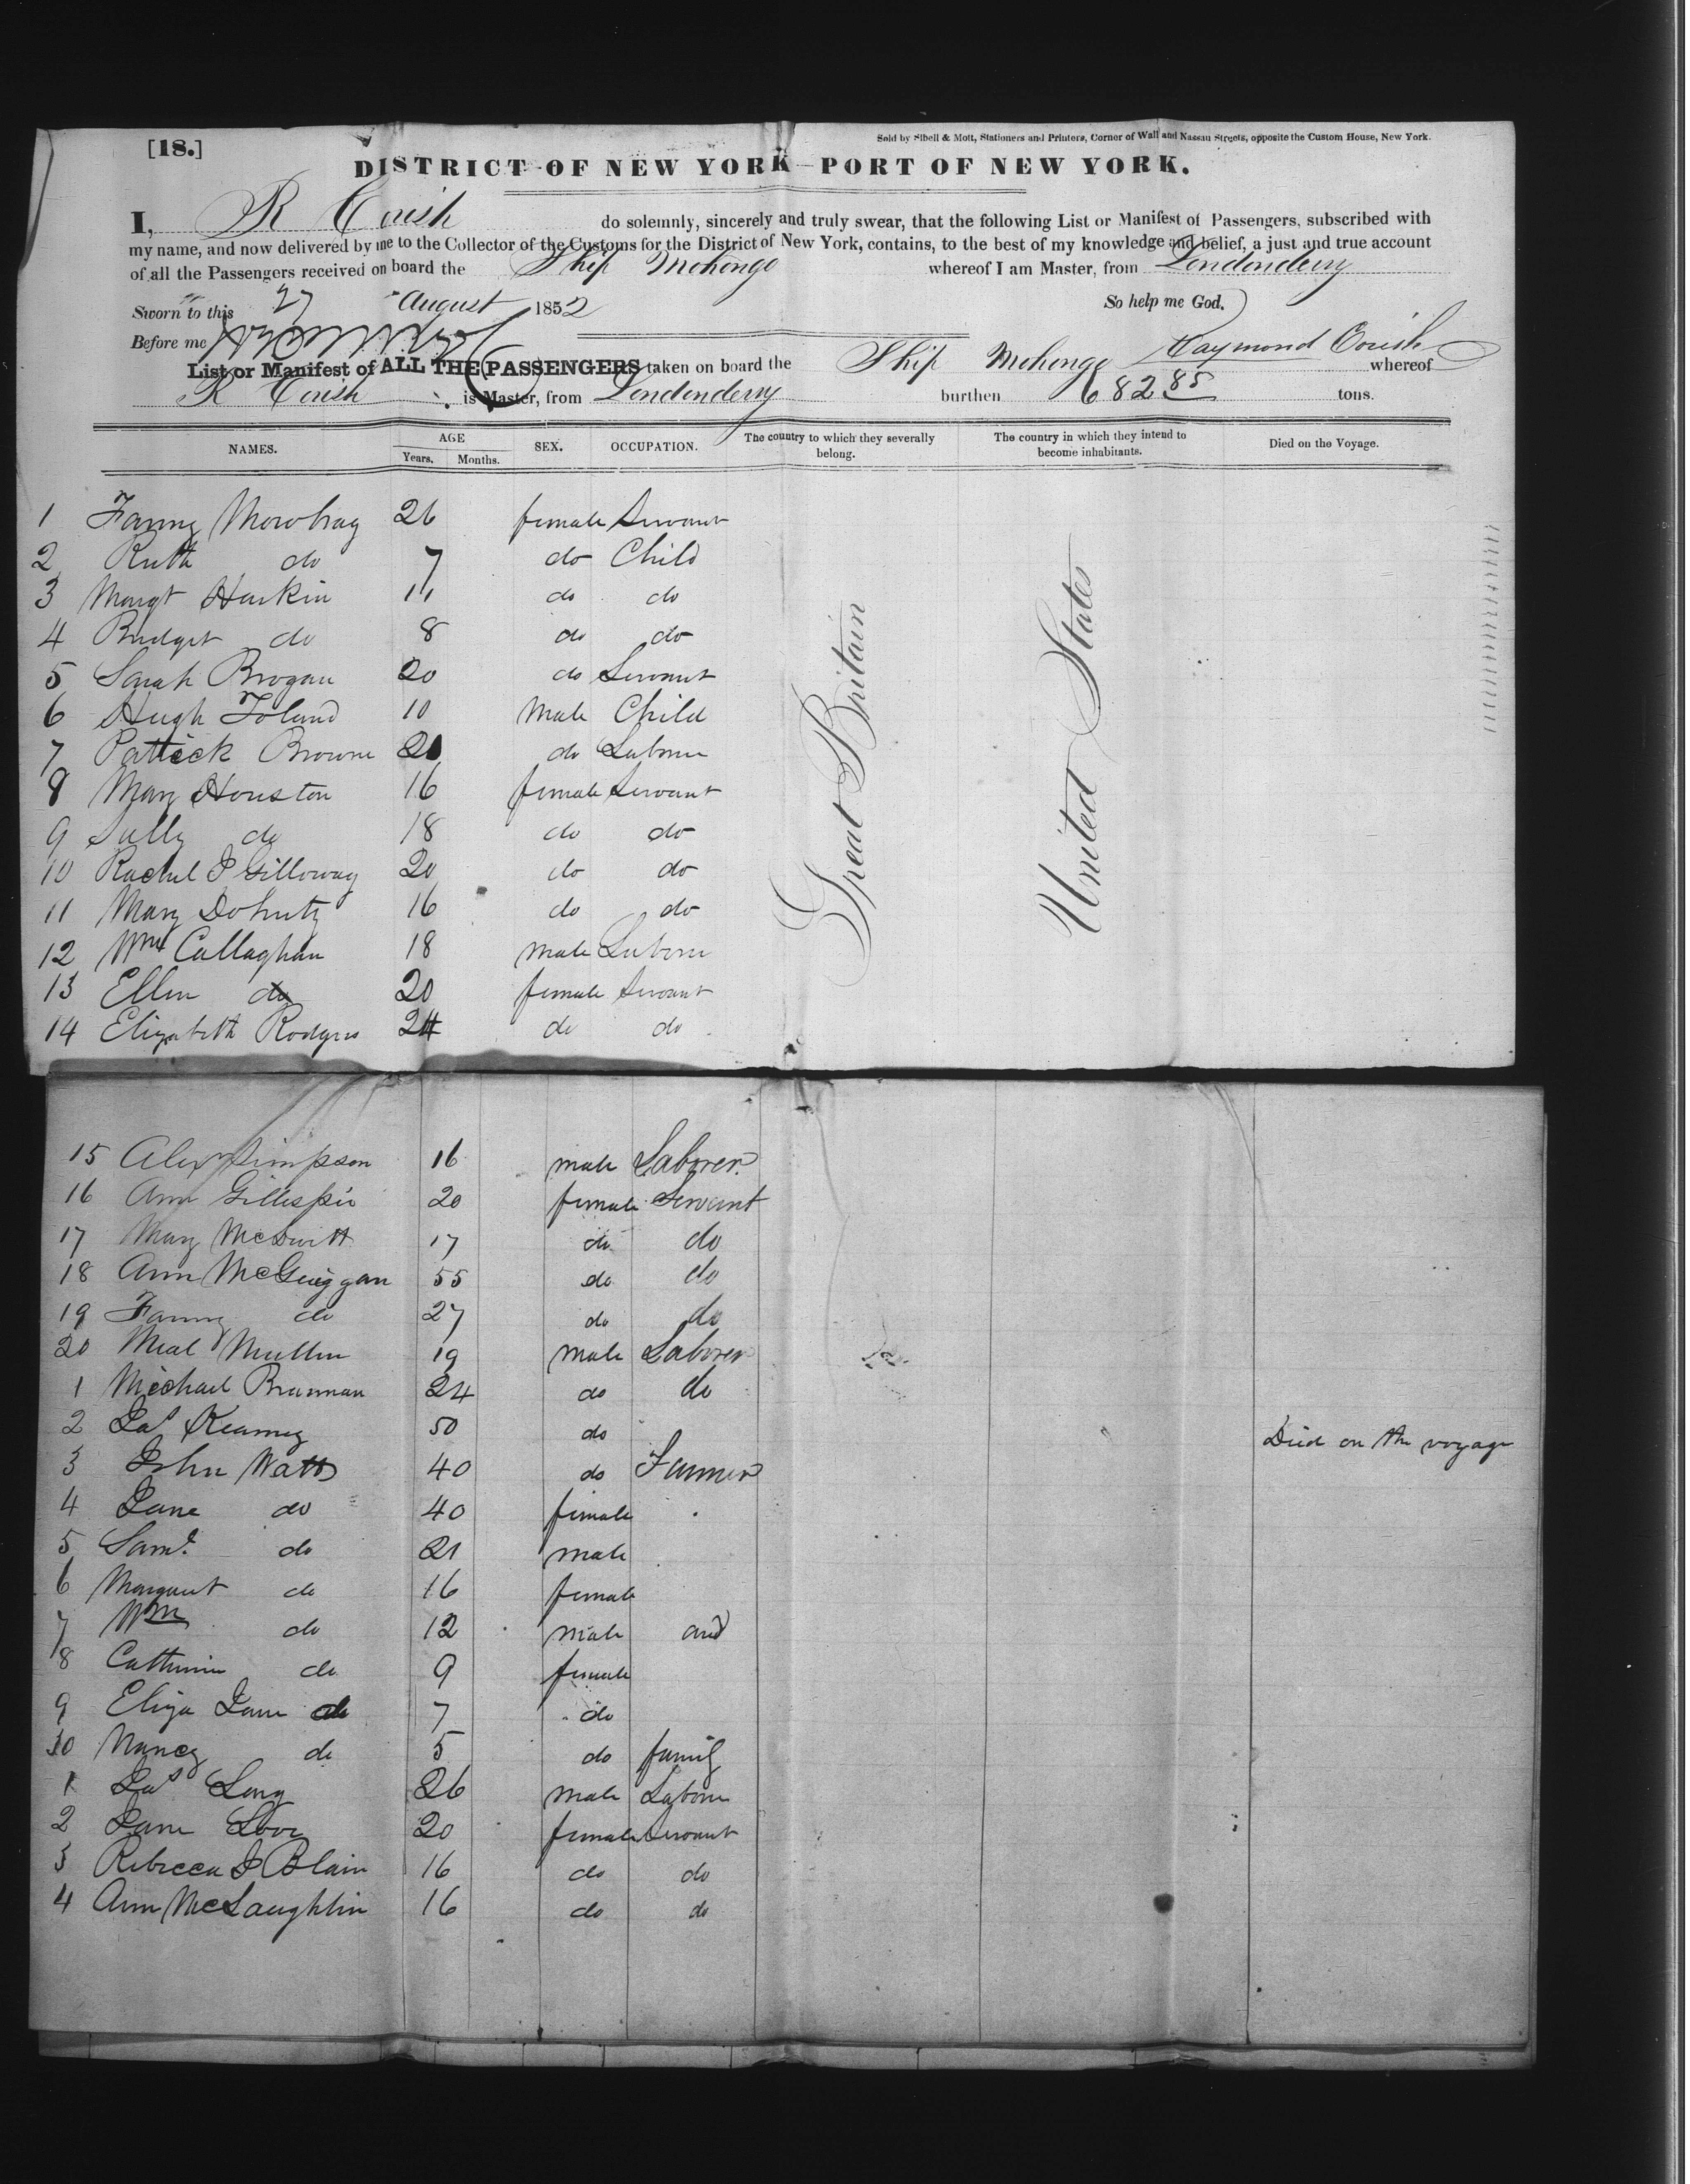 [18.]
Sold by Sibell & Mott, Stationers and Printers, Corner of Wall and Nassau Streets, opposite the Custom House, New York.
DISTRICT OF NEW YORK—PORT OF NEW YORK.
I, R Corish do solemnly, sincerely and truly swear, that the following List or Manifest of Passengers, subscribed with
my name, and now delivered by me to the Collector of the Customs for the District of New York, contains, to the best of my knowledge and belief, a just and true account
of all the Passengers received on board the Ship Mohongo whereof I am Master, from Londonderry
Sworn to this 27 August 1852 So help me God.
Before me
Raymond Corish
List or Manifest of ALL THE PASSENGERS taken on board the Ship Mohongo whereof
R Corish is Master, from Londonderry burthen 682 85 tons.
NAMES. AGE Years. Months. SEX. OCCUPATION. The country to which they severally belong. The country in which they intend to become inhabitants. Died on the Voyage.
Great Britain
United States
1 Fanny Mowbray 26 female Servant
2 Ruth do 7 do Child
3 Margt Harkin 11 do do
4 Bridget do 8 do do
5 Sarah Brogan 20 do Servant
6 Hugh Toland 10 Male Child
7 Patrick Browne 20 do Laborer
8 Mary Houston 16 female Servant
9 Sally do 18 do do
10 Rachel J Gilloway 20 do do
11 Mary Doherty 16 do do
12 Wm Callaghan 18 male Laborer
13 Ellen do 20 female Servant
14 Elizabeth Rodgers 24 do do
15 Alexr Simpson 16 male Laborer
16 Ann Gillespie 20 female Servant
17 Mary McDevitt 17 do do
18 Ann McGuiggan 55 do do
19 Fanny do 27 do do
20 Neal Mullen 19 male Laborer
1 Michael Brannan 24 do do
2 Jas Kearney 50 do Died on the voyage
3 John Watts 40 do Farmer
4 Jane do 40 female
5 Saml do 21 male
6 Margaret do 16 female
7 Wm do 12 male and
8 Catherine do 9 female
9 Eliza Jane do 7 do
30 Nancy do 5 do family
1 Jas Long 26 male Laborer
2 Jane Love 20 female Servant
3 Rebecca J Blain 16 do do
4 Ann McLaughlin 16 do do